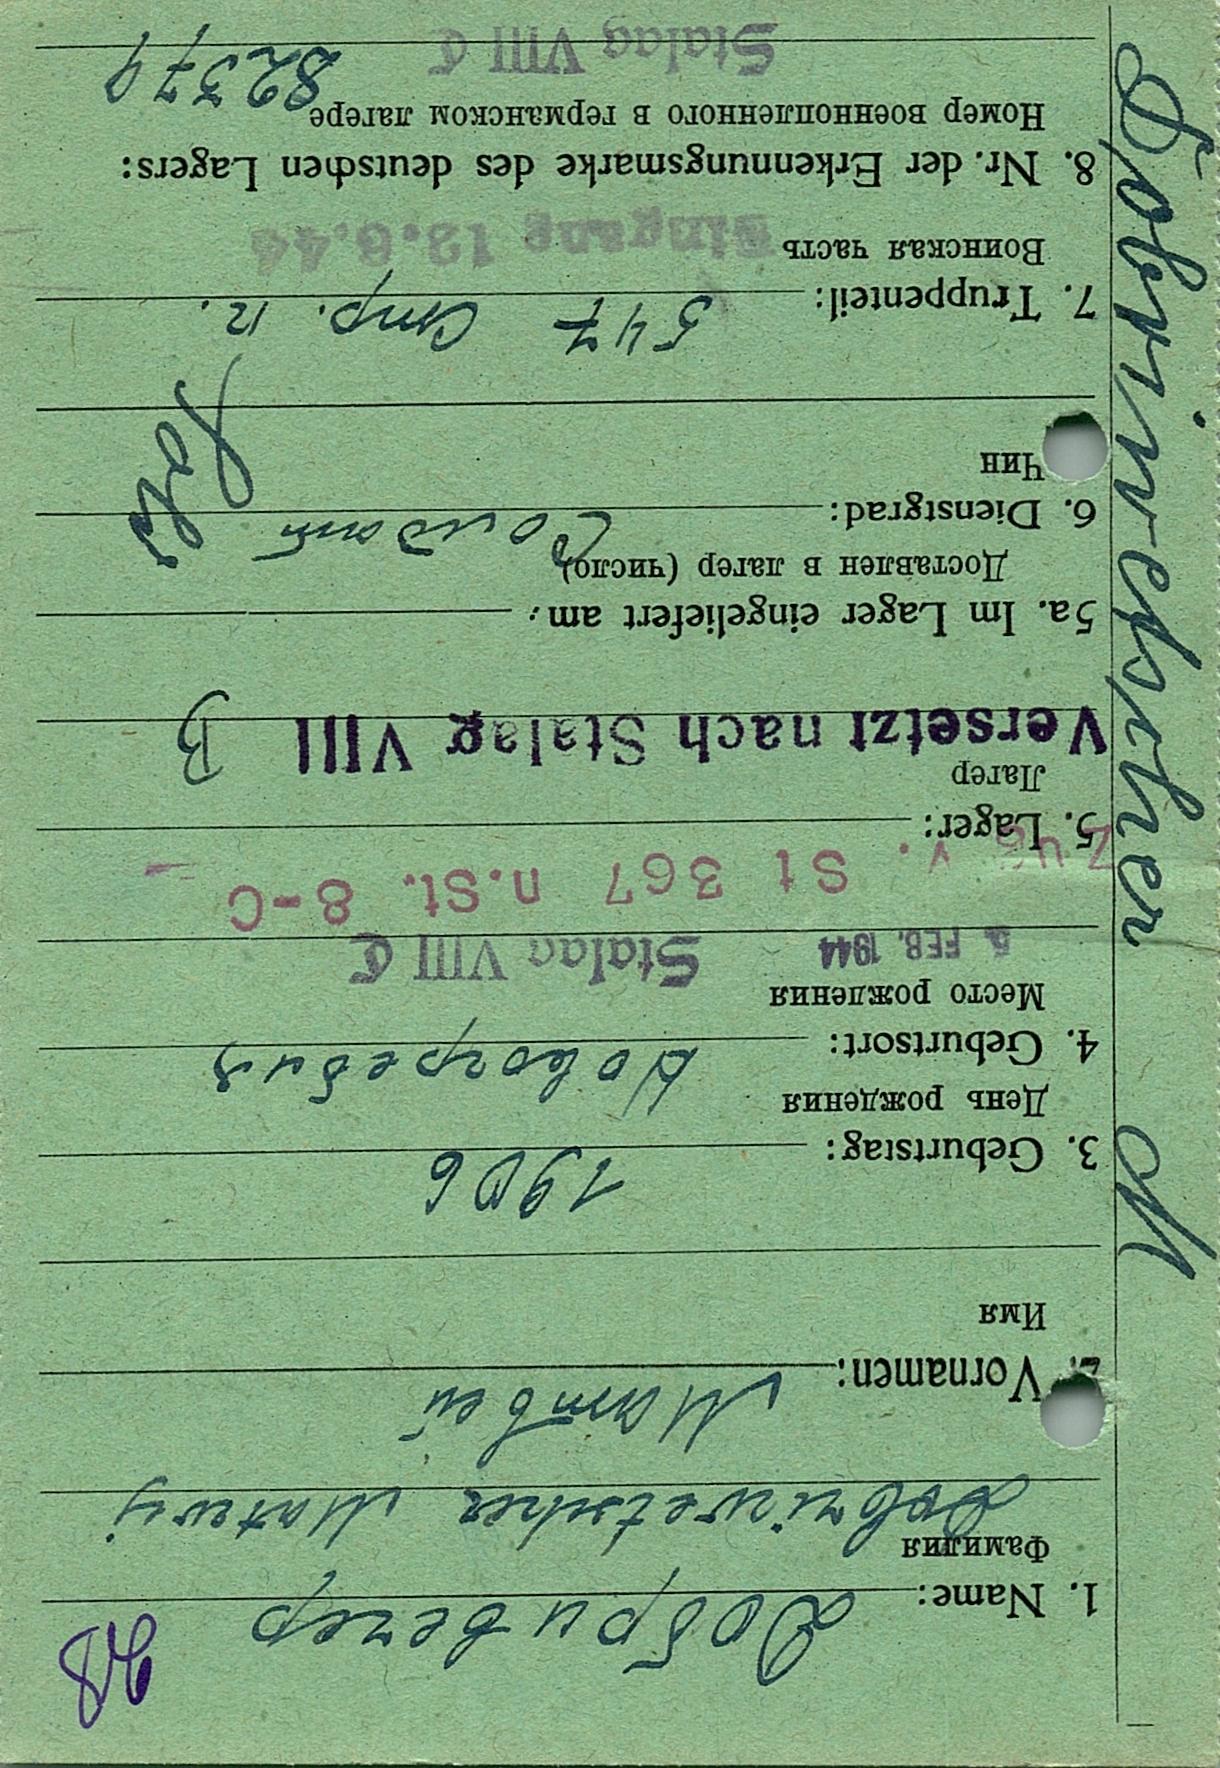 28
1. Name: Добривечер
Фамилия
Dobriwetscher Matewij
Матвей
2. Vornamen:
Имя
3. Geburtstag: 1906
День рождения
4. Geburtsort: Новогребля
Место рождения
5. FEB. 1944 Stalag VIII C
Zug. v. St 367 n. St. 8-C
5. Lager:
Лагер
Versetzt nach Stalag VIII B
5a. Im Lager eingeliefert am:
Доставлен в лагер (число)
6. Dienstgrad: Солдат
Чин
7. Truppenteil: 547 стр. п.
Воинская часть
Eingang 13.6.44
8. Nr. der Erkennungsmarke des deutschen Lagers:
Номер военнопленного в германском лагере
82379
Stalag VIII C
Dobriwetscher M